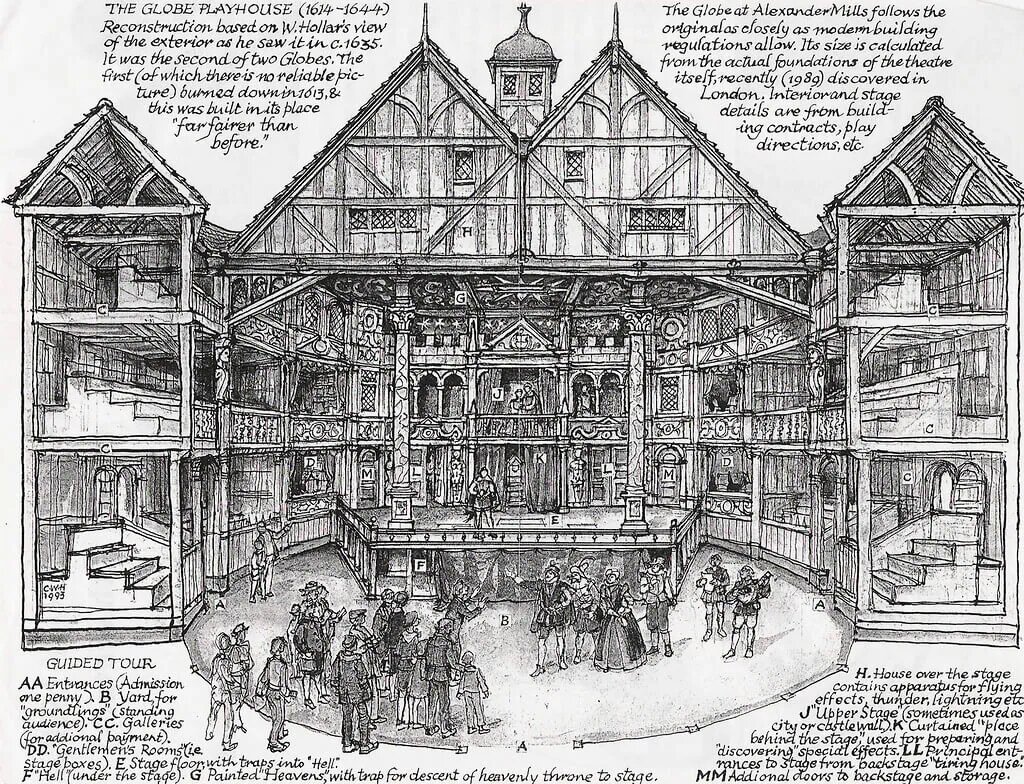 THE GLOBE PLAYHOUSE (1614~1644)
Reconstruction based on W. Hollar's view
of the exterior as he saw it in c.1635.
It was the second of two Globes. The
first (of which there is no reliable pic-
ture) burned down in 1613, &
this was built in its place
"far fairer than
before."
The Globe at Alexander Mills follows the
original as closely as modern building
regulations allow. Its size is calculated
from the actual foundations of the theatre
itself, recently (1989) discovered in
London. Interior and stage
details are from build-
ing contracts, play
directions, etc
H
G
C
C
C
C
J
C
C
D
M
L
K
L
M
D
E
F
A
B
A
A
CWH
1993
GUIDED TOUR
AA Entrances (Admission
one penny). B Yard, for
"groundlings" (standing
audience). CC. Galleries
(for addional payment).
DD. "Gentlemen's Rooms" (i.e.
stage boxes). E Stage floor, with traps into "Hell".
F "Hell" (under the stage). G Painted "Heavens", with trap for descent of heavenly throne to stage.
H. House over the stage
contains apparatus for flying
effects, thunder, lightning etc
J "Upper Stage (sometimes used as
city or castle wall). K Curtained "place
behind the stage," used for preparing and
"discovering" special effects. LL Principal ent-
rances to stage from backstage "tiring house."
MM Addional doors to backstage and storage.